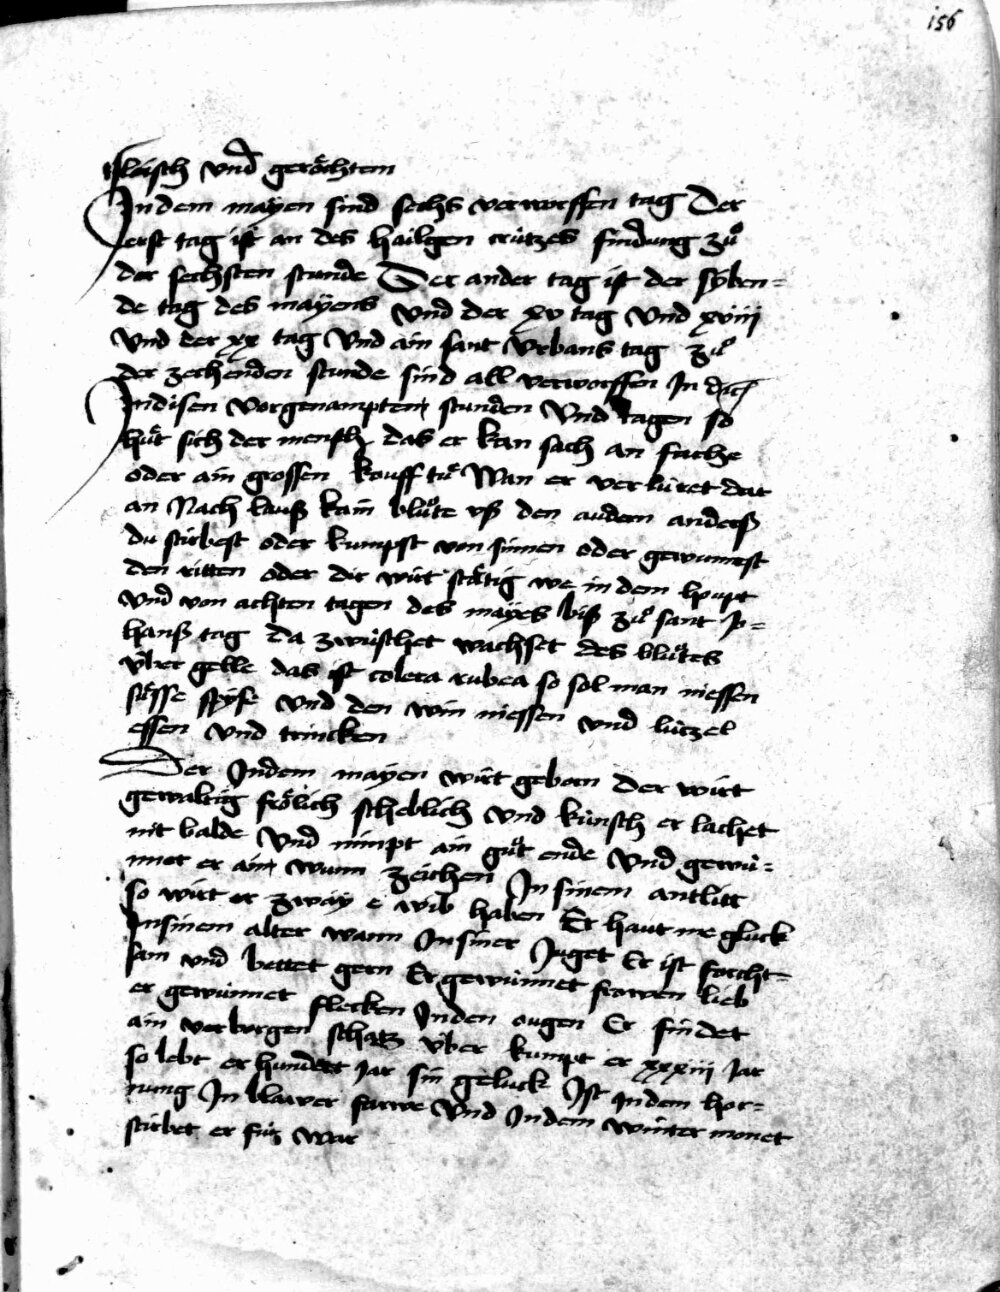 156
fleisch vnd geröchtem
In dem mayen sind sechs verworffen tag Der
erst tag ist an des hailgen crützes findung zů
der sechsten stunde Der ander tag ist der syben=
de tag des mayens vnd der xv tag vnd xviii
vnd der xx tag vnd ain sant Vrbans tag zů
der zechenden stunde sind all verworffen In
In disen vorgenampten stunden vnd tagen so
hůt sich der mensch das er kain sach an fache
oder ain grossen kouff tů Wan er verlüret dar
an Nach lauß kain blůte vß den audern anderß
du stirbest oder kumpst von sinnen oder gewinnest
den ritten oder dir wirt stätig we in dem houpt
vnd von achten tagen des mayes biß zů sant Jo=
hanß tag da zwüschet wachset des blůtes
über gelle das ist colera rubea so sol man niessen
süsse spyse vnd den win niessen vnd lützel
essen vnd trincken
Der In dem mayen wirt geborn der wirt
gewaltig frölich scheblich vnd künsch er lachet
nit balde vnd nimpt ain gůt ende vnd gewi=
nnet er ain wunn zeichen In sinem antlitt
so wirt er zway e wib haben Er haut me gluck
In sinem alter wann In siner Juget Er ist forcht=
sam vnd bettet gern Er gewinnet frowen lieb
er gewinnet flecken In den ougen Er findet
ain verborgen schatz über kumpt er xxxiii Jar
so lebt er hundert Jar sin geluck Ist in dem hor=
nung In blawer farwe vnd In dem winter monet
stirbet er für war